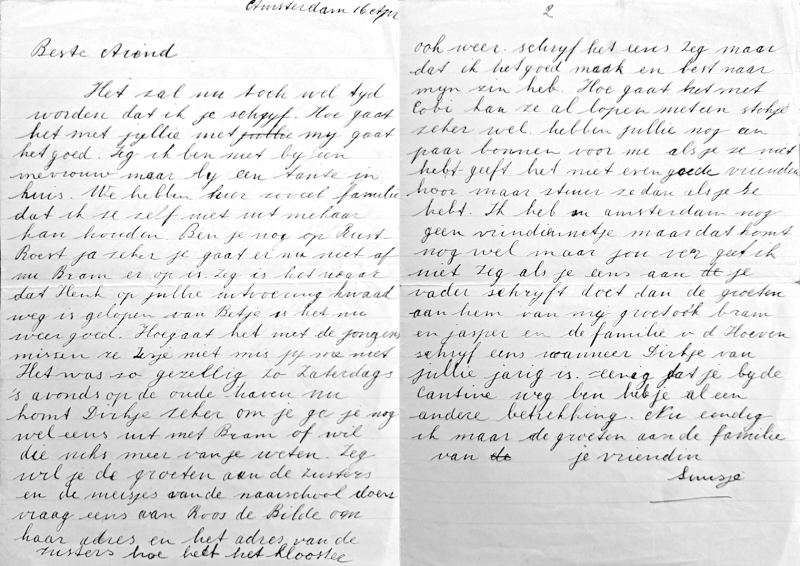 Amsterdam 16 Apr
Beste Arend
Het zal nu toch wel tyd
worden dat ik je schryf. Hoe gaat
het met jyllie met jullie my gaat
het goed. Zeg ik ben niet by een
mevrouw maar by een tante in
huis. We hebben hier zoveel familie
dat ik ze zelf niet uit mekaar
kan houden. Ben je nog op Rust-
Roest ja zeker je gaat er nu niet af
nu Bram er op is. Zeg is het waar
dat Henk op jullie uitvoering kwaad
weg is gelopen van Betje is het nu
weer goed. Hoe gaat het met de jongens
missen ze niet mis jy me niet
Het was zo gezellig zo Zaterdags
's avonds op de oude haven nu
komt Dirkje zeker om je ga je nog
wel eens uit met Bram of wil
die niks meer van je weten. Zeg
wil je de groeten aan de Zusters
en de meisjes van de naaischool doen
vraag eens aan Roos de Bilde om
haar adres en het adres van de
zusters hoe heet het klooster
2
ook weer. schryf het eens zeg maar
dat ik het goed maak en best naar
myn zin heb. Hoe gaat het met
Cobi kan ze al lopen met een stokje
zeker wel. hebben jullie nog een
paar bonnen voor me als je ze niet
hebt geeft het niet even goede vrienden
hoor maar stuur ze dan als je ze
hebt. Ik heb in amsterdam nog
geen vrindinnetje maar dat komt
nog wel maar jou ver geet ik
niet zeg als je eens aan de je
vader schryft doet dan de groeten
aan hem van my groet ook bram
en jasper en de familie v d Hoeven
schryf eens wanneer Dirkje van
jullie jarig is. eenig dat je by de
Cantine weg ben heb je al een
andere betrekking. Nu eindig
ik maar de groeten aan de familie
van de je vriendin
Suusje